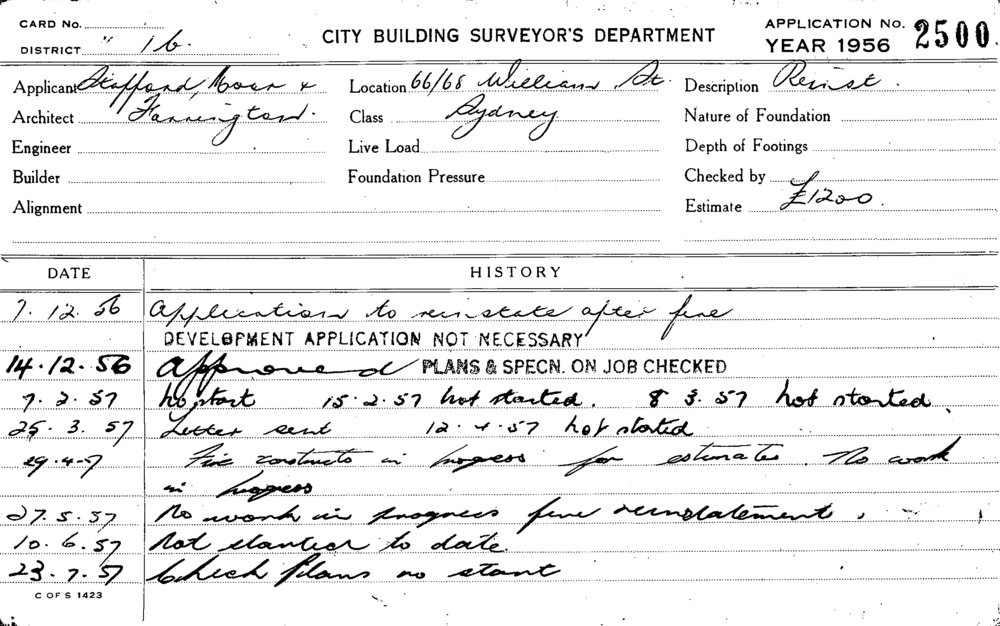 CARD No. APPLICATION No. 2500
DISTRICT " 16. CITY BUILDING SURVEYOR'S DEPARTMENT YEAR 1956
Applicant Stafford, Moor & Location 66/68 William St. Description Reinst.
Architect Farrington. Class Sydney Nature of Foundation
Engineer Live Load Depth of Footings
Builder Foundation Pressure Checked by
Alignment Estimate £1200.
DATE HISTORY
7.12.56 Application to reinstate after fire
DEVELOPMENT APPLICATION NOT NECESSARY
14.12.56 Approved PLANS & SPECN. ON JOB CHECKED
7.2.57 no start 15.2.57 not started. 8 3.57 not started.
25.3.57 Letter sent 12.4.57 not started
29.4.57 in progress for estimates. No work
in progress
27.5.57 No work in progress fire reinstatement.
10.6.57 Not started to date
23.7.57 Check Plans no start
C OF S 1423